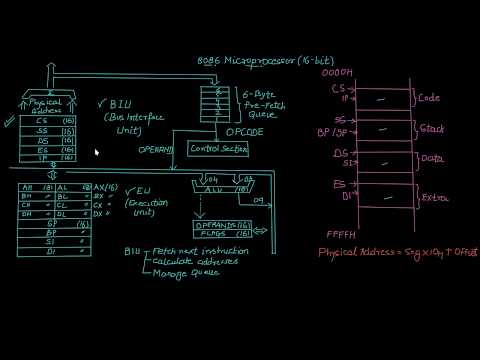 8086 Microprocessor (16-bit)
Σ
Physical
Address
CS (16)
SS (16)
DS (16)
ES (16)
IP (16)
✓ BIU
(Bus Interface
Unit)
6
5
4
3
2
1
6-Byte
Pre-Fetch
Queue
OPCODE
OPERAND
Control Section
AH (8) AL (8) AX (16)
BH " BL " BX "
CH " CL " CX "
DH " DL " DX "
SP (16)
BP "
SI "
DI "
✓ EU
(Execution
Unit)
ALU (16)
OPERANDS (16)
FLAGS (16)
BIU
Fetch next instruction
Calculate addresses
Manage Queue
0000H
CS
IP
Code
SS
BP/SP
Stack
DS
SI
Data
ES
DI
Extra
FFFFH
Physical Address = Seg x 10H + Offset